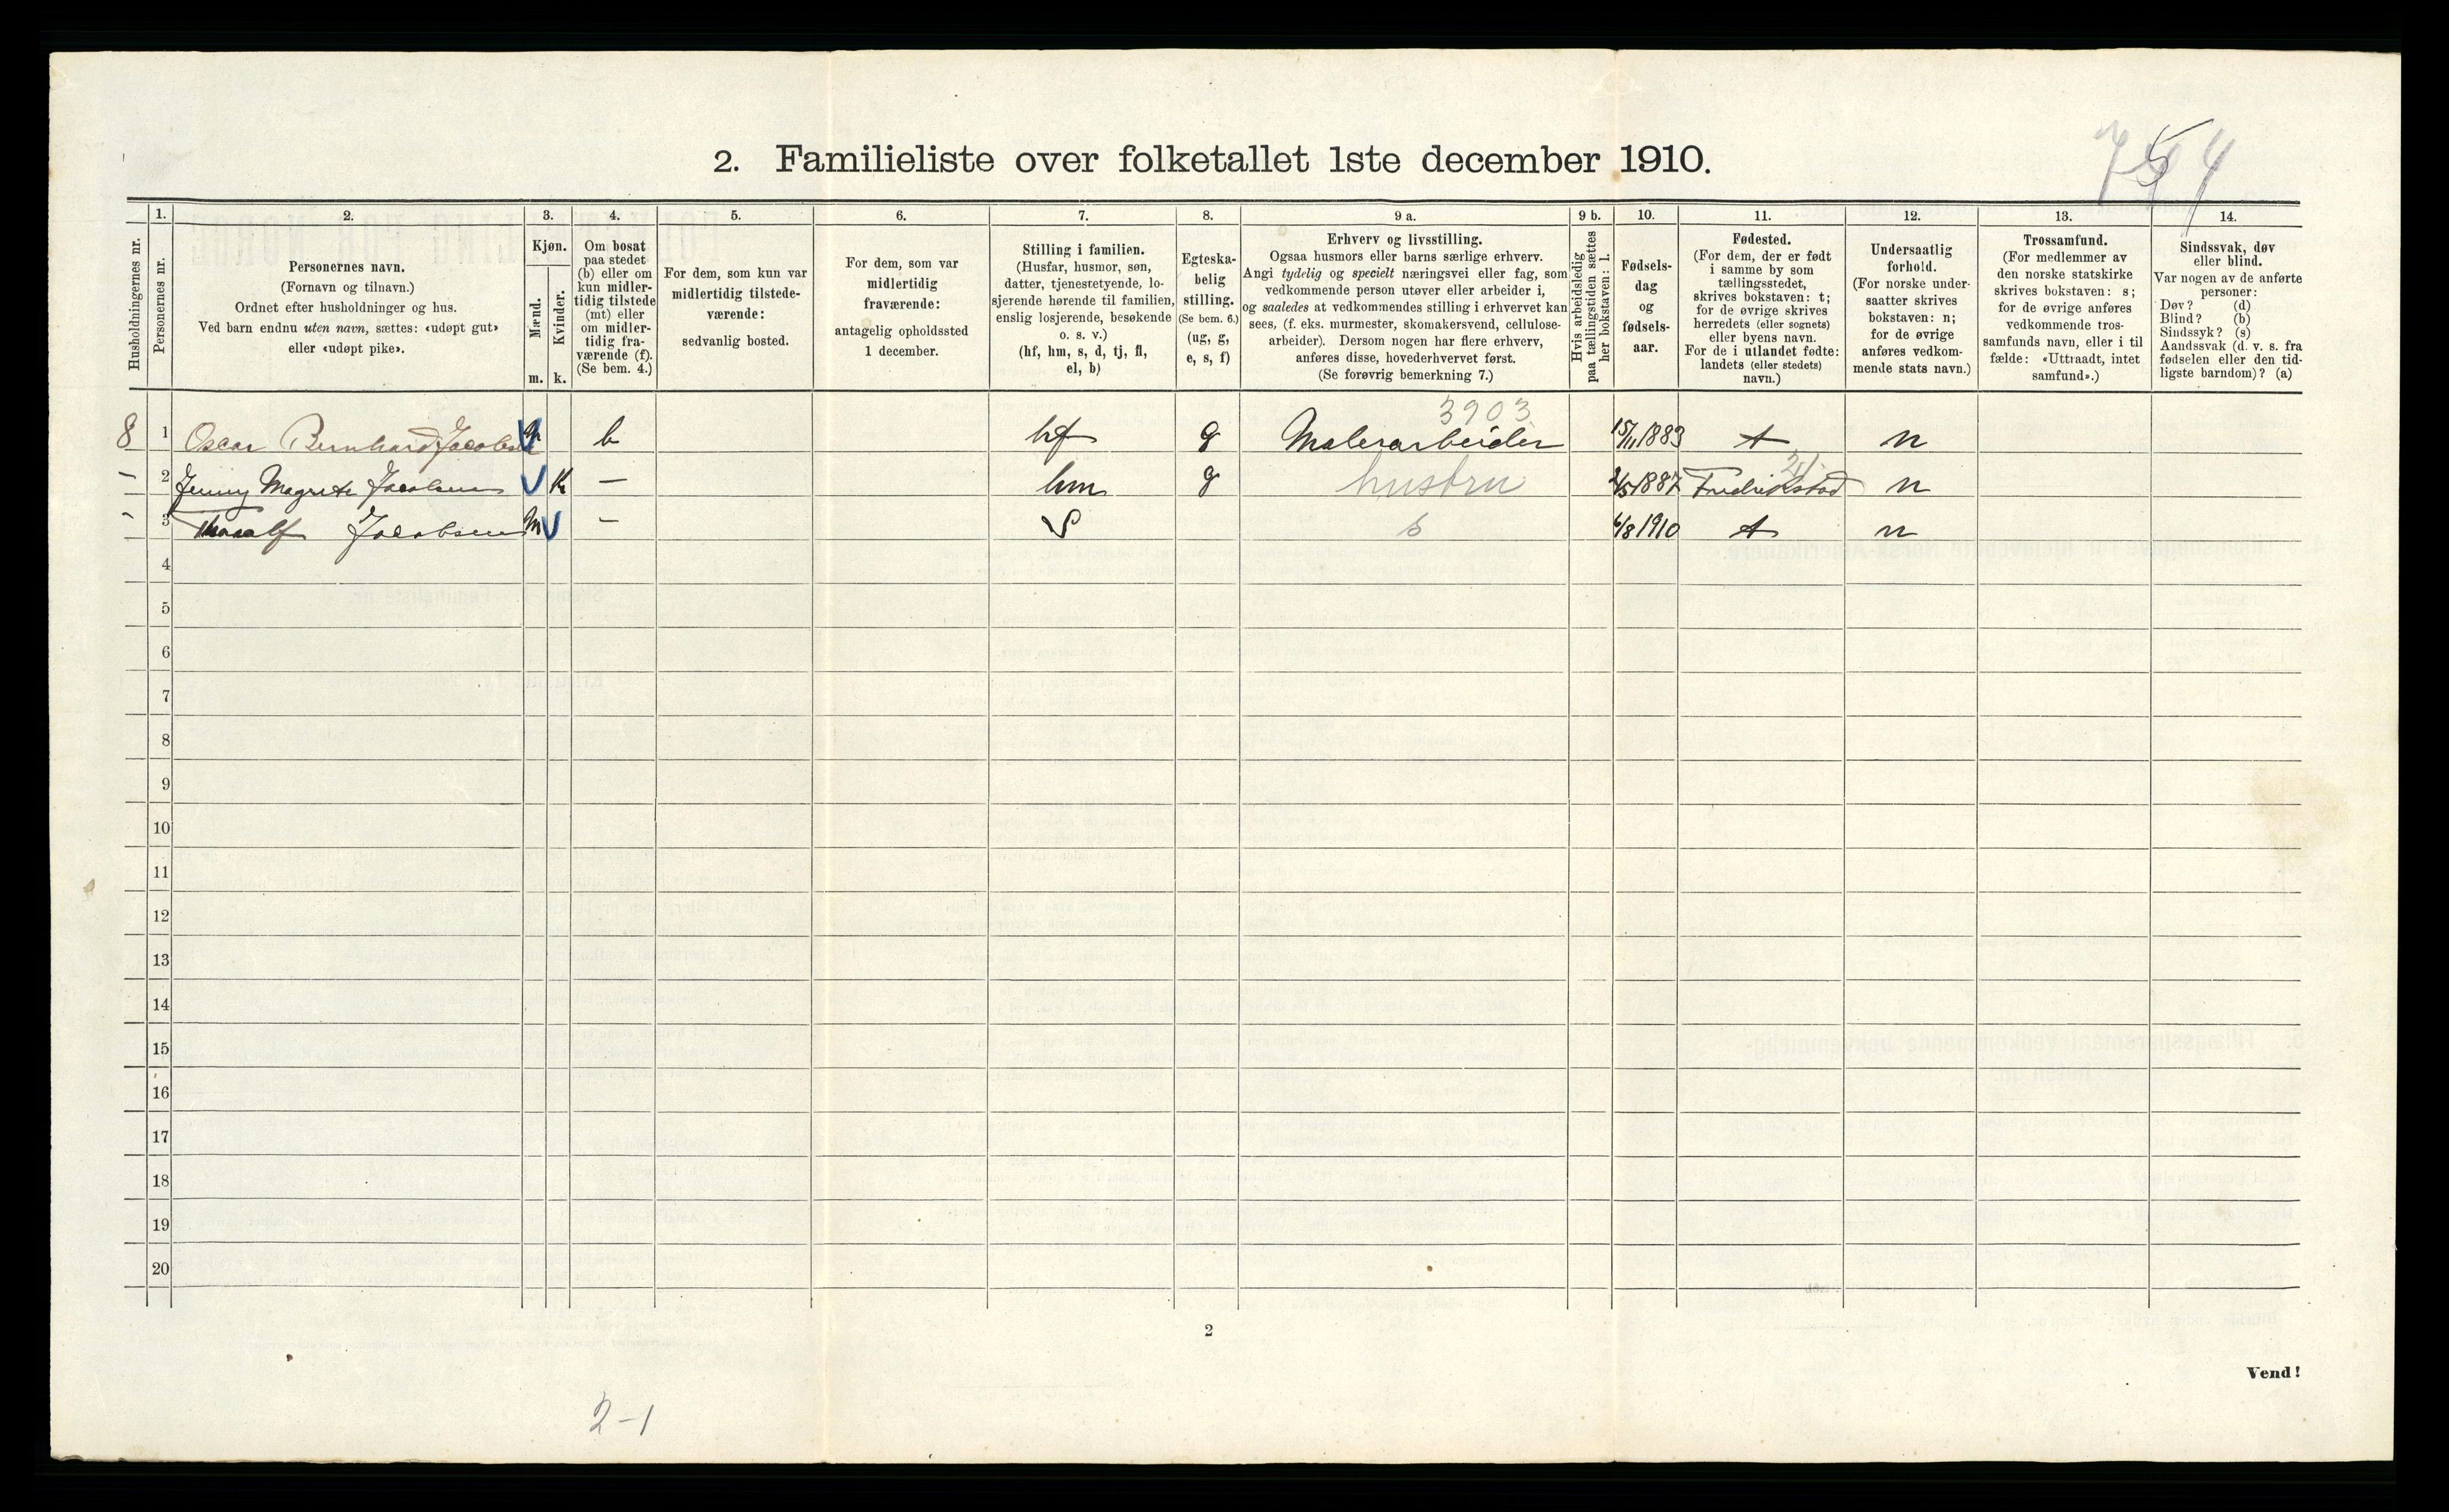 754
2. Familieliste over folketallet 1ste december 1910.
Husholdningernes nr.
1.
Personernes nr.
2.
Personernes navn.
(Fornavn og tilnavn.)
Ordnet efter husholdninger og hus.
Ved barn endnu uten navn, sættes: «udøpt gut»
eller «udøpt pike».
3.
Kjøn.
Mænd.
Kvinder.
m. k.
4.
Om bosat
paa stedet
(b) eller om
kun midler-
tidig tilstede
(mt) eller
om midler-
tidig fra-
værende (f).
(Se bem. 4.)
5.
For dem, som kun var
midlertidig tilstede-
værende:
sedvanlig bosted.
6.
For dem, som var
midlertidig
fraværende:
antagelig opholdssted
1 december.
7.
Stilling i familien.
(Husfar, husmor, søn,
datter, tjenestetyende, lo-
sjerende hørende til familien,
enslig losjerende, besøkende
o. s. v.)
(hf, hm, s, d, tj, fl,
el, b)
8.
Egteska-
belig
stilling.
(Se bem. 6.)
(ug, g,
e, s, f)
9 a.
Erhverv og livsstilling.
Ogsaa husmors eller barns særlige erhverv.
Angi tydelig og specielt næringsvei eller fag, som
vedkommende person utøver eller arbeider i,
og saaledes at vedkommendes stilling i erhvervet kan
sees, (f. eks. murmester, skomakersvend, cellulose-
arbeider). Dersom nogen har flere erhverv,
anføres disse, hovederhvervet først.
(Se forøvrig bemerkning 7.)
9 b.
Hvis arbeidsledig
paa tællingstiden sættes
her bokstaven: l.
10.
Fødsels-
dag
og
fødsels-
aar.
11.
Fødested.
(For dem, der er født
i samme by som
tællingsstedet,
skrives bokstaven: t;
for de øvrige skrives
herredets (eller sognets)
eller byens navn.
For de i utlandet fødte:
landets (eller stedets)
navn.)
12.
Undersaatlig
forhold.
(For norske under-
saatter skrives
bokstaven: n;
for de øvrige
anføres vedkom-
mende stats navn.)
13.
Trossamfund.
(For medlemmer av
den norske statskirke
skrives bokstaven: s;
for de øvrige anføres
vedkommende tros-
samfunds navn, eller i til
fælde: «Uttraadt, intet
samfund».)
14.
Sindssvak, døv
eller blind.
Var nogen av de anførte
personer:
Døv? (d)
Blind? (b)
Sindssyk? (s)
Aandssvak (d. v. s. fra
fødselen eller den tid-
ligste barndom)? (a)
3903
8 1 Oscar Bernhard Jacobsen m b hf g Malerarbeider 15/11 1883 t n
21
- 2 Jenny Magrete Jacobsen K - hm g hustru 2/5 1887 Fredrikstad n
- 3 Jacobsen m - S s 6/8 1910 t n
4
5
6
7
8
9
10
11
12
13
14
15
16
17
18
19
20
2
Vend!
2-1